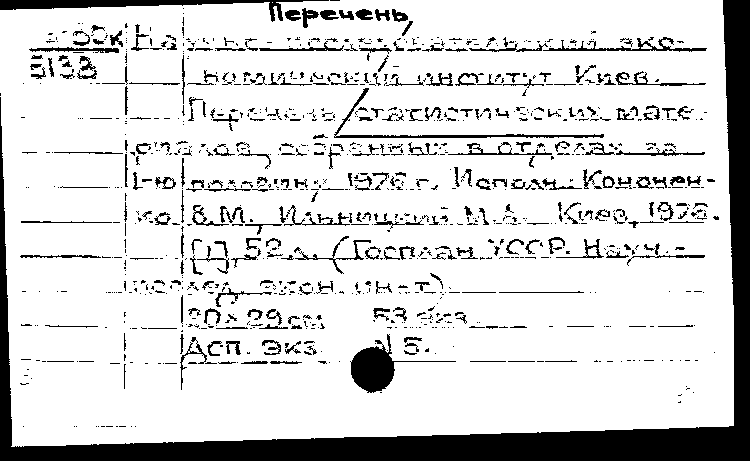 Перечень
Научно-исследовательский эко-
5138 номический институт Киев.
Перечень статистических мате-
риалов, собранных в отделах за
1-ю половину 1976 г. Исполн.: Кононен-
ко В.М., Ильницкий М.А. Киев, 1976.
[1], 52 л. (Госплан УССР. Науч.-
исслед. экон. ин-т)
20×29 см 53 экз.
Дсп. Экз. N 5.